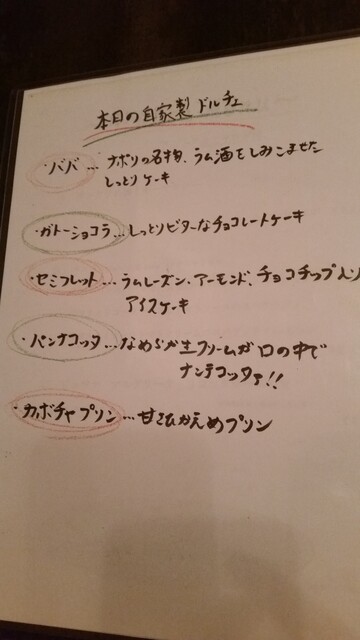 本日の自家製ドルチェ
・ババ…ナポリの名物、ラム酒をしみこませた
しっとりケーキ
・ガトーショコラ…しっとりビターなチョコレートケーキ
・セミフレット…ラムレーズン、アーモンド、チョコチップ入り
アイスケーキ
・パンナコッタ…なめらか生クリームが口の中で
ナンテコッタァ!!
・カボチャプリン…甘さひかえめプリン